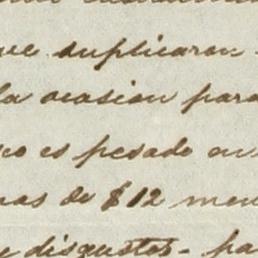 ue suplicaron
la ocasion para
co es pesado en
mas de $12 men
e disgustos - pa